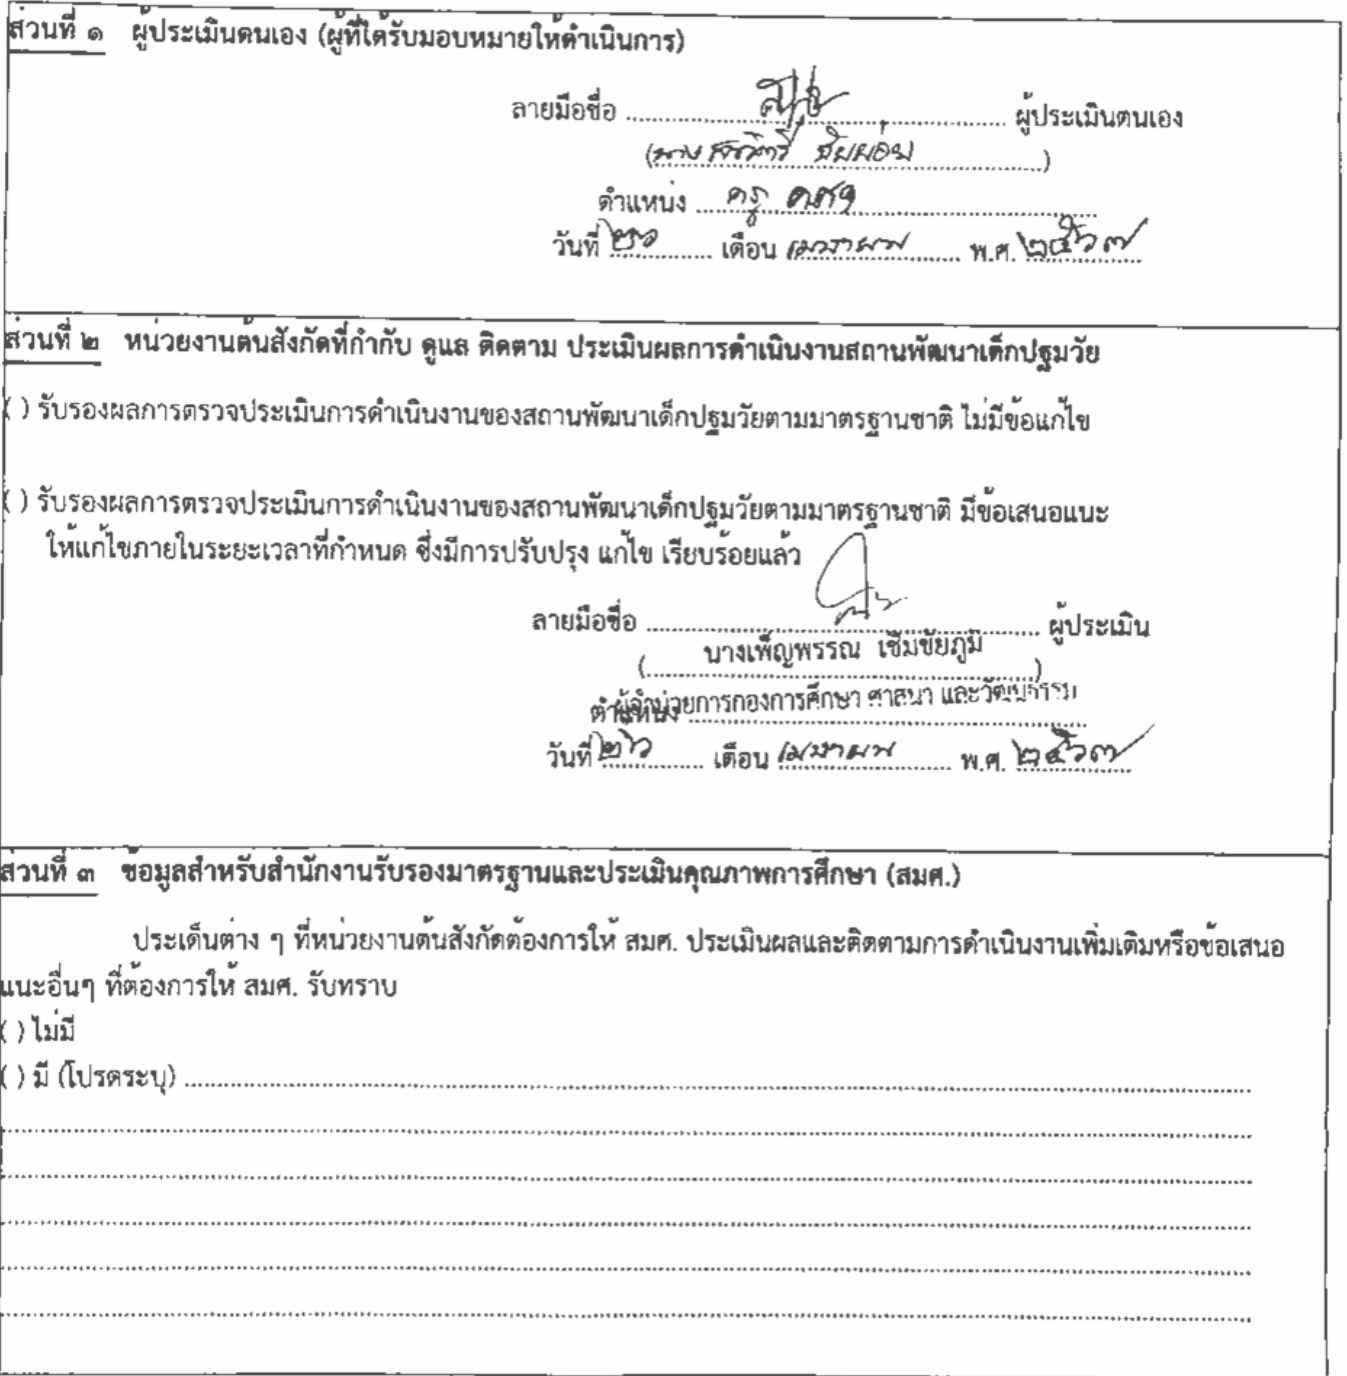 ส่วนที่ ๑ ผู้ประเมินตนเอง (ผู้ที่ได้รับมอบหมายให้ดำเนินการ)
ลายมือชื่อ ........ ผู้ประเมินตนเอง
(นาง )
ตำแหน่ง ครู คศ๑
วันที่ ๒๖ เดือน เมษายน พ.ศ. ๒๕๖๗
ส่วนที่ ๒ หน่วยงานต้นสังกัดที่กำกับ ดูแล ติดตาม ประเมินผลการดำเนินงานสถานพัฒนาเด็กปฐมวัย
( ) รับรองผลการตรวจประเมินการดำเนินงานของสถานพัฒนาเด็กปฐมวัยตามมาตรฐานชาติ ไม่มีข้อแก้ไข
( ) รับรองผลการตรวจประเมินการดำเนินงานของสถานพัฒนาเด็กปฐมวัยตามมาตรฐานชาติ มีข้อเสนอแนะ
ให้แก้ไขภายในระยะเวลาที่กำหนด ซึ่งมีการปรับปรุง แก้ไข เรียบร้อยแล้ว
ลายมือชื่อ ........ ผู้ประเมิน
(นางเพ็ญพรรณ เข็มชัยภูมิ)
ตำแหน่ง ผู้อำนวยการกองการศึกษา ศาสนา และวัฒนธรรม
วันที่ ๒๖ เดือน เมษายน พ.ศ. ๒๕๖๗
ส่วนที่ ๓ ข้อมูลสำหรับสำนักงานรับรองมาตรฐานและประเมินคุณภาพการศึกษา (สมศ.)
ประเด็นต่าง ๆ ที่หน่วยงานต้นสังกัดต้องการให้ สมศ. ประเมินผลและติดตามการดำเนินงานเพิ่มเติมหรือข้อเสนอ
แนะอื่นๆ ที่ต้องการให้ สมศ. รับทราบ
( ) ไม่มี
( ) มี (โปรดระบุ) ........